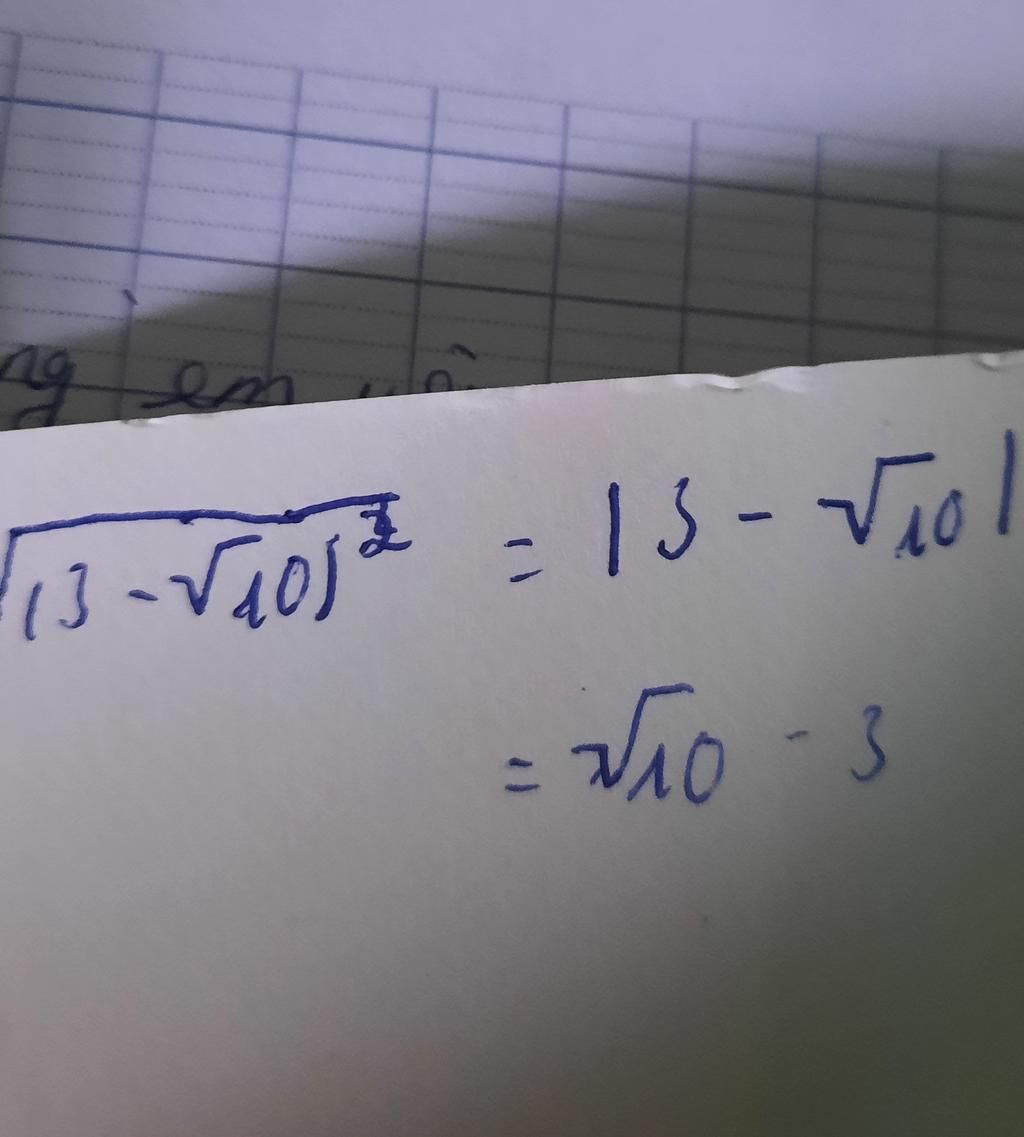 ng em
√(3 - √10)² = |3 - √10|
= √10 - 3